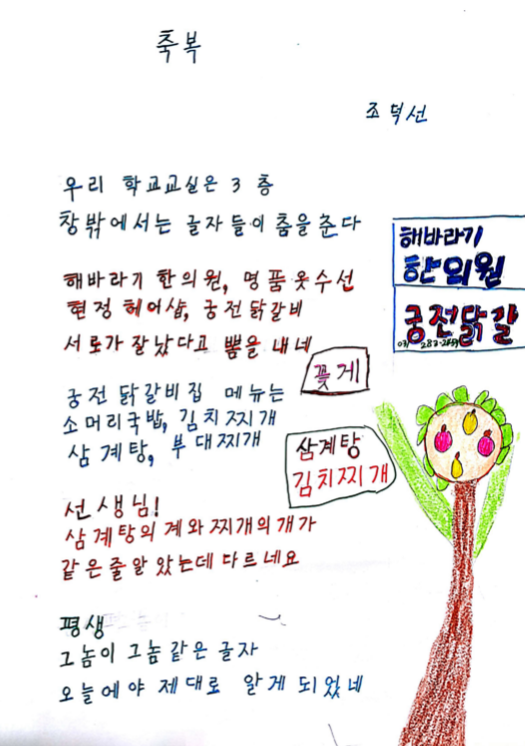 축복
조덕선
우리 학교교실은 3 층
창밖에서는 글자들이 춤을 춘다
해바라기 한의원, 명품 옷수선
현정 헤어샵, 궁전 닭갈비
서로가 잘났다고 뽐을 내네
궁전 닭갈비집 메뉴는
소머리국밥, 김치찌개
삼계탕, 부대찌개
선생님!
삼계탕의 계와 찌개의 개가
같은줄알았는데 다르네요
평생
그놈이 그놈같은 글자
오늘에야 제대로 알게 되었네
해바라기
한의원
궁전닭갈
꽃게
삼계탕
김치찌개